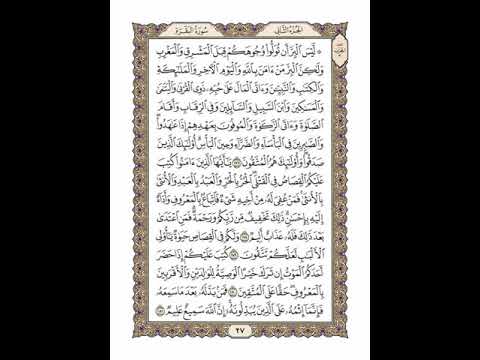 الجزء الثاني
سورة البقرة
۞ لَّيْسَ ٱلْبِرَّ أَن تُوَلُّوا۟ وُجُوهَكُمْ قِبَلَ ٱلْمَشْرِقِ وَٱلْمَغْرِبِ
وَلَٰكِنَّ ٱلْبِرَّ مَنْ ءَامَنَ بِٱللَّهِ وَٱلْيَوْمِ ٱلْءَاخِرِ وَٱلْمَلَٰٓئِكَةِ
وَٱلْكِتَٰبِ وَٱلنَّبِيِّۦنَ وَءَاتَى ٱلْمَالَ عَلَىٰ حُبِّهِۦ ذَوِى ٱلْقُرْبَىٰ وَٱلْيَتَٰمَىٰ
وَٱلْمَسَٰكِينَ وَٱبْنَ ٱلسَّبِيلِ وَٱلسَّآئِلِينَ وَفِى ٱلرِّقَابِ وَأَقَامَ
ٱلصَّلَوٰةَ وَءَاتَى ٱلزَّكَوٰةَ وَٱلْمُوفُونَ بِعَهْدِهِمْ إِذَا عَٰهَدُوا۟
وَٱلصَّٰبِرِينَ فِى ٱلْبَأْسَآءِ وَٱلضَّرَّآءِ وَحِينَ ٱلْبَأْسِ أُو۟لَٰٓئِكَ ٱلَّذِينَ
صَدَقُوا۟ وَأُو۟لَٰٓئِكَ هُمُ ٱلْمُتَّقُونَ ١٧٧ يَٰٓأَيُّهَا ٱلَّذِينَ ءَامَنُوا۟ كُتِبَ
عَلَيْكُمُ ٱلْقِصَاصُ فِى ٱلْقَتْلَى ٱلْحُرُّ بِٱلْحُرِّ وَٱلْعَبْدُ بِٱلْعَبْدِ وَٱلْأُنثَىٰ
بِٱلْأُنثَىٰ فَمَنْ عُفِىَ لَهُۥ مِنْ أَخِيهِ شَىْءٌ فَٱتِّبَاعٌۢ بِٱلْمَعْرُوفِ وَأَدَآءٌ
إِلَيْهِ بِإِحْسَٰنٍ ذَٰلِكَ تَخْفِيفٌ مِّن رَّبِّكُمْ وَرَحْمَةٌ فَمَنِ ٱعْتَدَىٰ
بَعْدَ ذَٰلِكَ فَلَهُۥ عَذَابٌ أَلِيمٌ ١٧٨ وَلَكُمْ فِى ٱلْقِصَاصِ حَيَوٰةٌ يَٰٓأُو۟لِى
ٱلْأَلْبَٰبِ لَعَلَّكُمْ تَتَّقُونَ ١٧٩ كُتِبَ عَلَيْكُمْ إِذَا حَضَرَ
أَحَدَكُمُ ٱلْمَوْتُ إِن تَرَكَ خَيْرًا ٱلْوَصِيَّةُ لِلْوَٰلِدَيْنِ وَٱلْأَقْرَبِينَ
بِٱلْمَعْرُوفِ حَقًّا عَلَى ٱلْمُتَّقِينَ ١٨٠ فَمَنۢ بَدَّلَهُۥ بَعْدَ مَا سَمِعَهُۥ
فَإِنَّمَآ إِثْمُهُۥ عَلَى ٱلَّذِينَ يُبَدِّلُونَهُۥٓ إِنَّ ٱللَّهَ سَمِيعٌ عَلِيمٌ ١٨١
٢٧